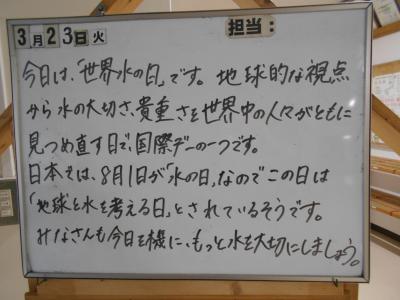 3月23日火 担当:
今日は、「世界水の日」です。地球的な視点
から水の大切さ、貴重さを世界中の人々がともに
見つめ直す日で、国際デーの一つです。
日本では、8月1日が「水の日」なのでこの日は
「地球と水を考える日」とされているそうです。
みなさんも今日を機に、もっと水を大切にしましょう。